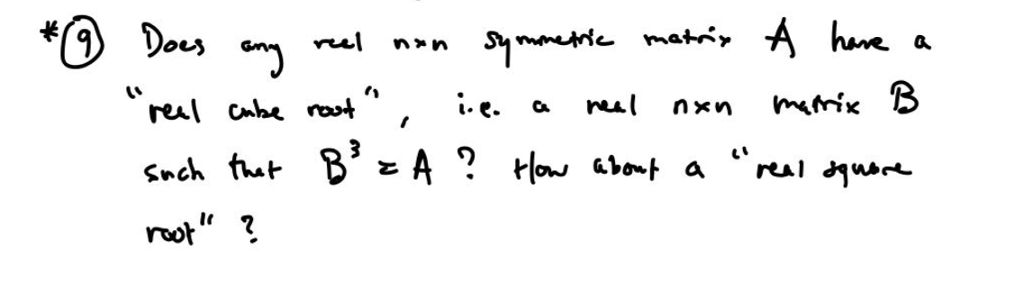 *⑨ Does any real n×n symmetric matrix A have a
"real cube root", i.e. a real n×n matrix B
such that B³ = A ? How about a "real square
root" ?